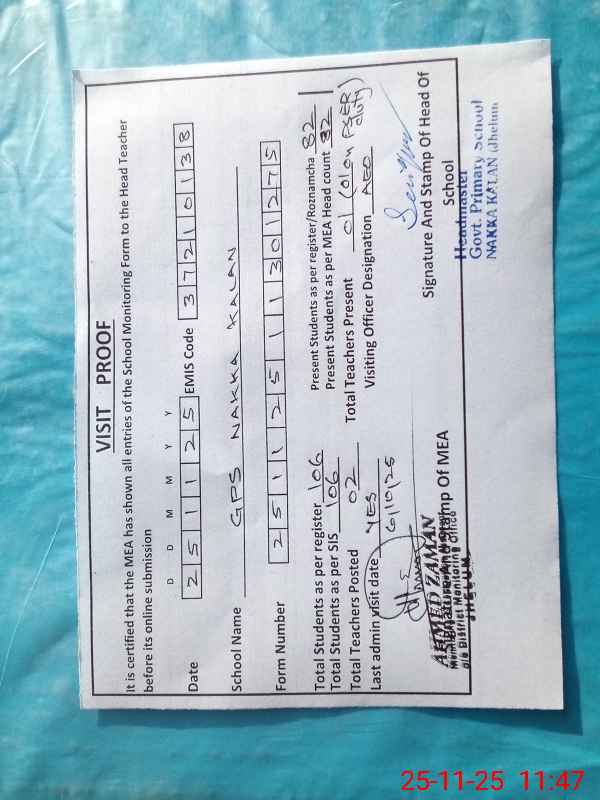 VISIT PROOF
It is certified that the MEA has shown all entries of the School Monitoring Form to the Head Teacher
before its online submission
D D M M Y Y
Date 2 5 1 1 2 5 EMIS Code 3 7 2 1 0 1 3 8
School Name GPS NAKKA KALAN
Form Number 2 5 1 1 2 5 1 1 3 0 1 2 7 5
Total Students as per register 106 Present Students as per register/Roznamcha 82
Total Students as per SIS 106 Present Students as per MEA Head count 82
Total Teachers Posted 02 Total Teachers Present 01 (01 on PSER duty)
Last admin visit date YES 6/10/25 Visiting Officer Designation AEO
Signature And Stamp Of MEA
AHMED ZAMAN
o/o District Monitoring Office
JHELUM
Signature And Stamp Of Head Of
School
Headmaster
Govt. Primary School
NAKKA KALAN (Jhelum
25-11-25 11:47